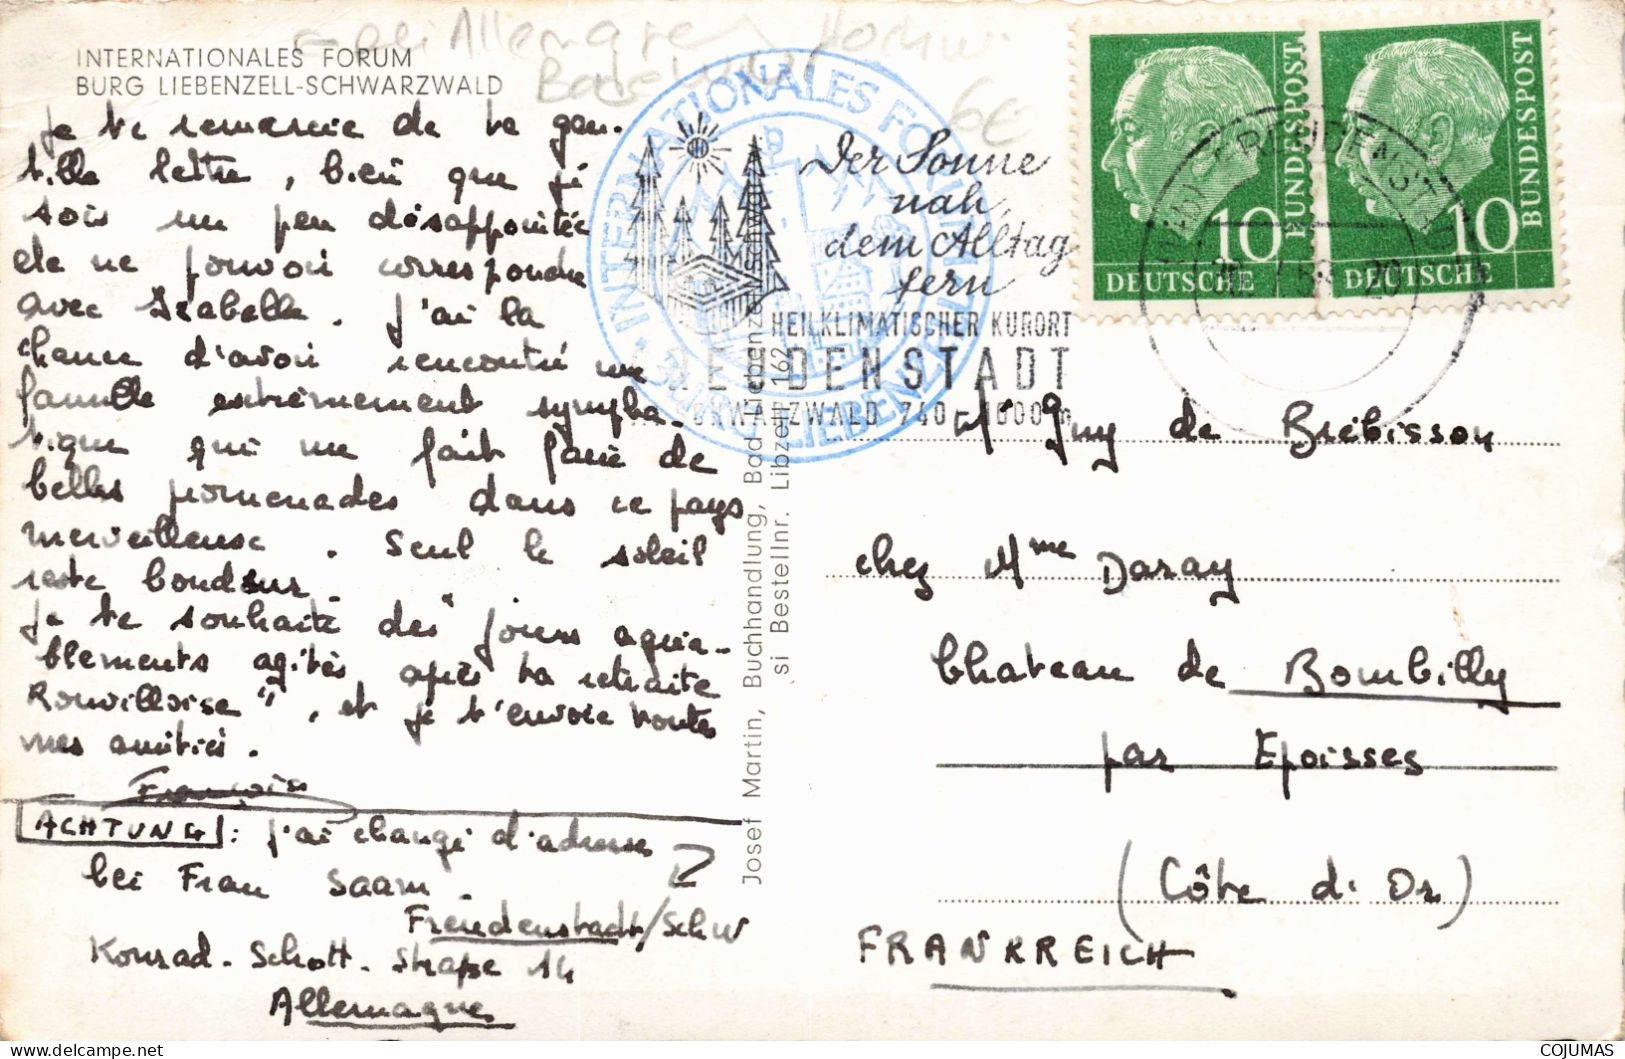 INTERNATIONALES FORUM
BURG LIEBENZELL-SCHWARZWALD
Je te remercie de ta gen-
tille lettre, bien que je
sois un peu désappointée
de ne pouvoir correspondre
avec Isabelle. J'ai la
chance d'avoir rencontré une
famille extrêmement sympha-
tique qui me fait faire de
belles promenades dans ce pays
merveilleux. Seul le soleil
reste boudeur.
Je te souhaite des "jours agréa-
blements agités après ta retraite
Rouvilloise", et je t'envoie toutes
mes amitiés.
Françoise
ACHTUNG: j'ai changé d'adresse
bei Frau Saam.
Freudenstadt/Schw
Konrad-Schott-Straße 14
Allemagne
Josef Martin, Buchhandlung, Bad Liebenzell
si Bestellnr. Libzell 162
INTERNATIONALES FORUM
BURG LIEBENZELL
Der Sonne
nah,
dem Alltag
fern
HEILKLIMATISCHER KURORT
FREUDENSTADT
SCHWARZWALD 740-1000m
FREUDENSTADT
10
DEUTSCHE
BUNDESPOST
10
DEUTSCHE
BUNDESPOST
6€
Mr Guy de Brébisson
chez Mme Daray
Chateau de Bourbilly
par Epoisses
(Côte d'Or)
FRANKREICH
COJUMAS